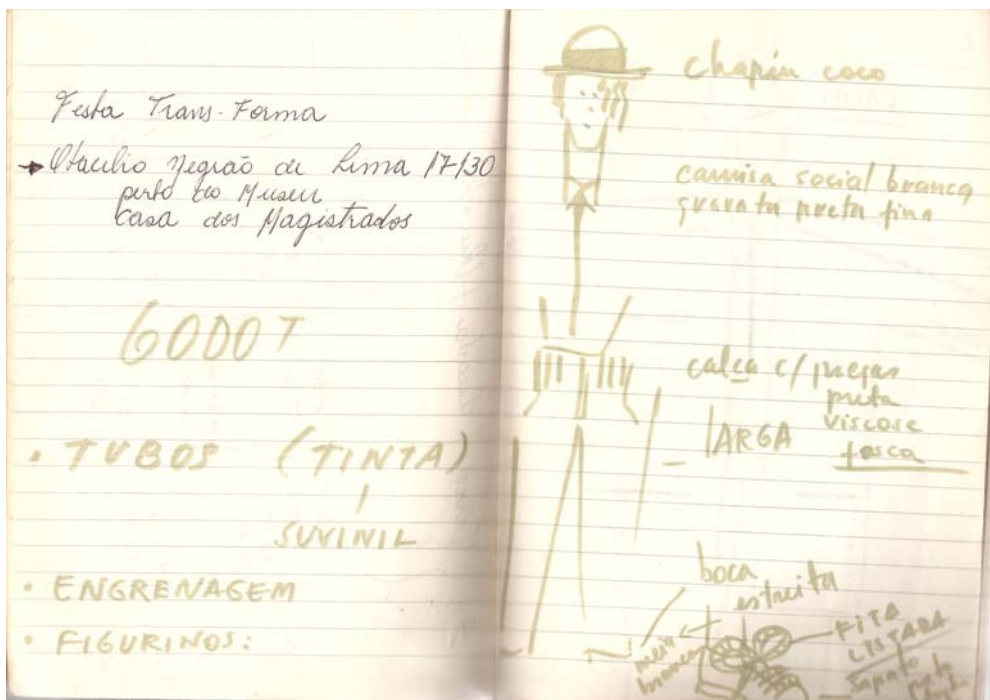 Festa Trans-Forma
Otacilio Negrão de Lima 17130
perto do Museu
Casa dos Magistrados
GODOT
• TUBOS (TINTA)
SUVINIL
• ENGRENAGEM
• FIGURINOS:
chapéu coco
camisa social branca
gravata preta fina
calça c/ pregas
preta
viscose
LARGA
fosca
boca
estreita
meia
branca
FITA
LISTADA
sapato
preto